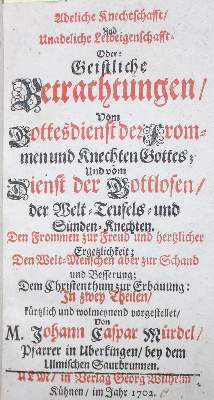 Adeliche Knechtschafft/
Und
Unadeliche Leibeigenschafft.
Oder:
Geistliche
Betrachtungen/
Vom
Gottesdienst der From-
men und Knechten Gottes;
Und vom
Dienst der Gottlosen/
der Welt-Teufels- und
Sünden-Knechten.
Den Frommen zur Freud und hertzlicher
Ergetzlichkeit;
Den Welt-Menschen aber zur Schand
und Besserung;
Dem Christenthum zur Erbauung:
In zwey Theilen/
kürtzlich und wolmeynend vorgestellet/
Von
M. Johann Caspar Mürdel/
Pfarrer in Uberkingen/ bey dem
Ulmischen Saurbrunnen.
ULM/ in Verlag Georg Wilhelm
Kühnen/ im Jahr 1702.